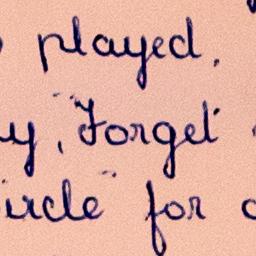 played.
y, "Forget
ircle" for